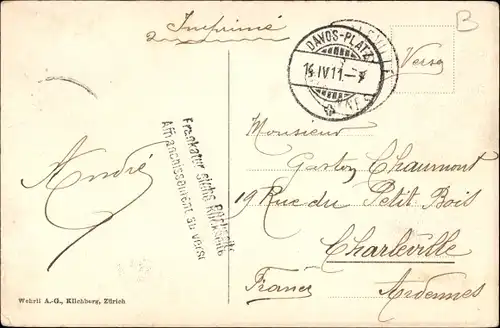 Imprimé
B
DAVOS-PLATZ
14.IV.11.-7
Verso
Frankatur siehe Rückseite
Affranchissement au verso
André
Monsieur
Gaston Chaumont
19 Rue du Petit Bois
Charleville
France Ardennes
Wehrli A.-G., Kilchberg, Zürich